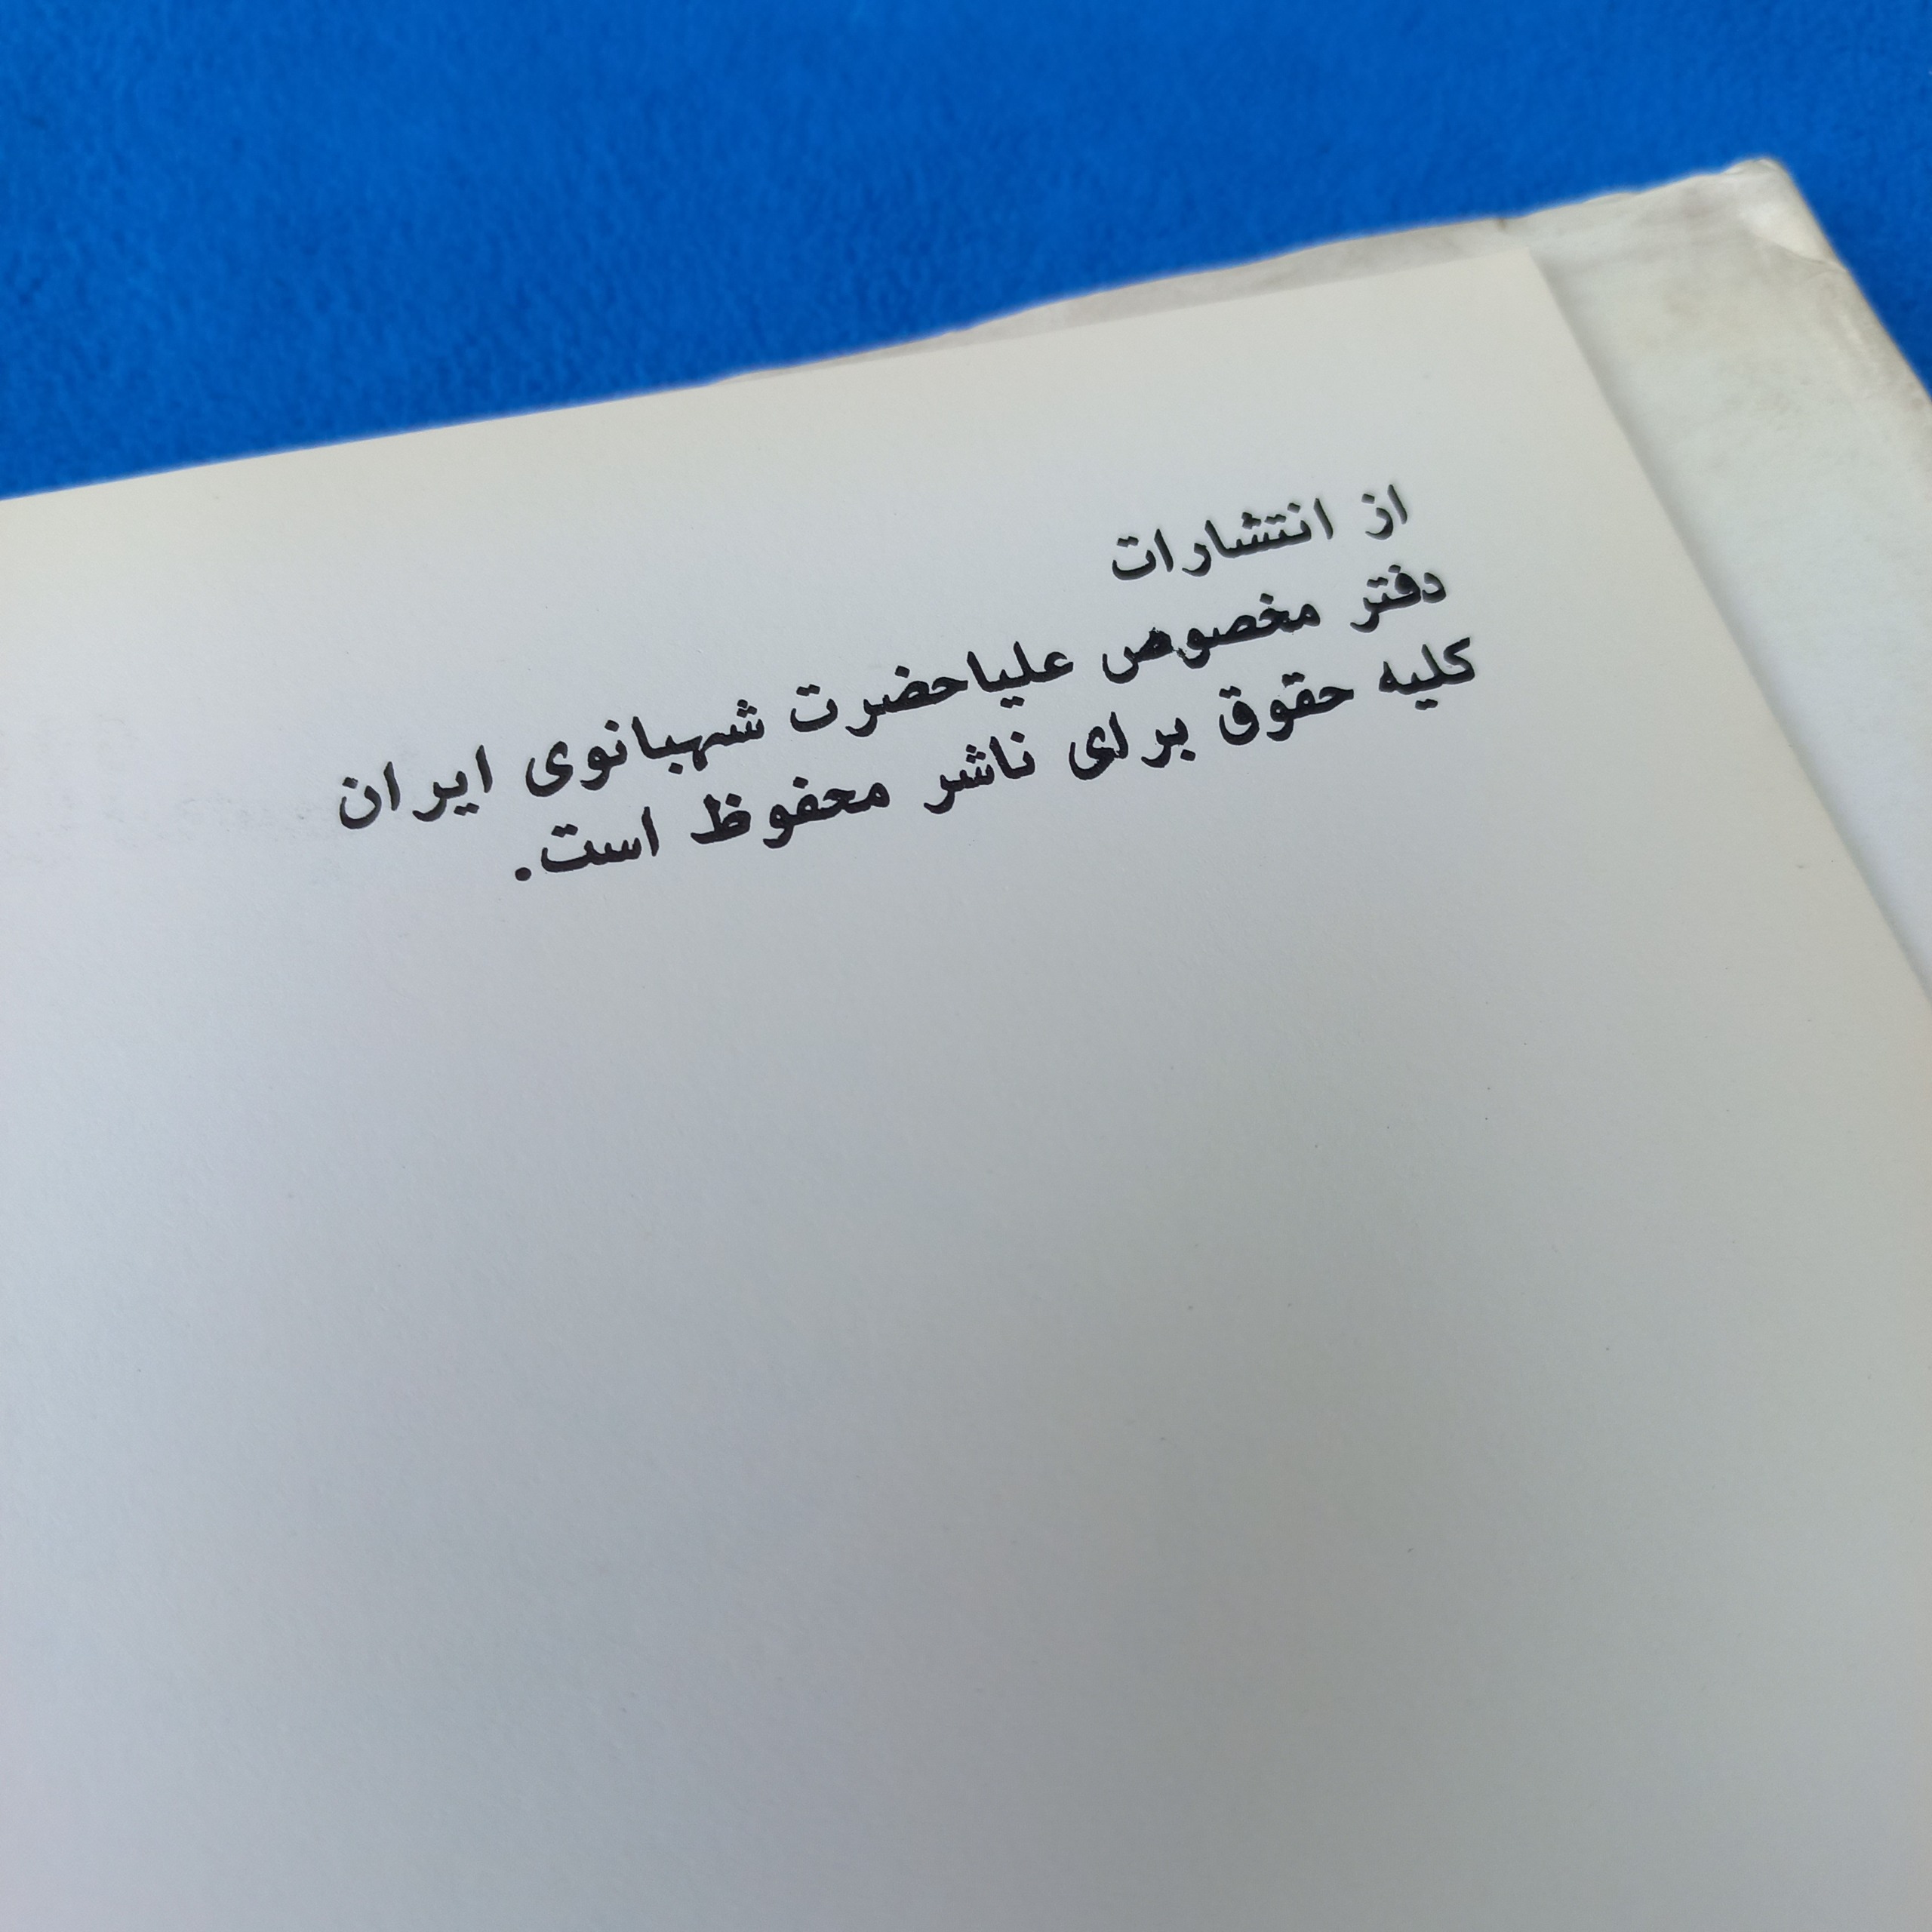 از انتشارات
دفتر مخصوص علیاحضرت شهبانوی ایران
کلیه حقوق برای ناشر محفوظ است.